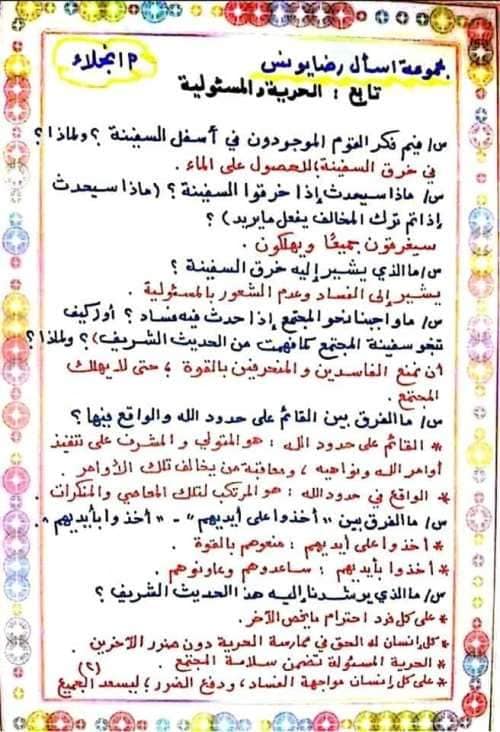 مجموعة اسأل رضا يونس
م / نجلاء
تابع : الحرية والمسئولية
س/ فيم فكر القوم الموجودون في أسفل السفينة ؟ ولماذا ؟
في خرق السفينة ؛ للحصول على الماء .
س/ ماذا سيحدث إذا خرقوا السفينة ؟ (ماذا سيحدث
إذا تم ترك المخالف يفعل ما يريد) ؟
سيغرقون جميعًا ويهلكون .
س/ ما الذي يشير إليه خرق السفينة ؟
يشير إلى الفساد وعدم الشعور بالمسئولية .
س/ ما واجبنا نحو المجتمع إذا حدث فيه فساد ؟ أو (كيف
تنجو سفينة المجتمع كما فهمت من الحديث الشريف) ؟ ولماذا ؟
أن نمنع الفاسدين والمنحرفين بالقوة ؛ حتى لا يهلك
المجتمع .
س/ ما الفرق بين القائم على حدود الله والواقع فيها ؟
* القائم على حدود الله : هو المتولي والمشرف على تنفيذ
أوامر الله ونواهيه ، ومعاقبة من يخالف تلك الأوامر .
* الواقع في حدود الله : هو المرتكب لتلك المعاصي والمنكرات .
س/ ما الفرق بين " أخذوا على أيديهم " - " أخذوا بأيديهم " .
* أخذوا على أيديهم : منعوهم بالقوة .
* أخذوا بأيديهم : ساعدوهم وعاونوهم .
س/ ما الذي يرشدنا إليه هذا الحديث الشريف ؟
* على كل فرد احترام ما يخص الآخر .
* كل إنسان له الحق في ممارسة الحرية دون ضرر الآخرين .
* الحرية المسئولة تضمن سلامة المجتمع .
* على كل إنسان مواجهة الفساد ، ودفع الضرر ؛ ليسعد الجميع
(٢)